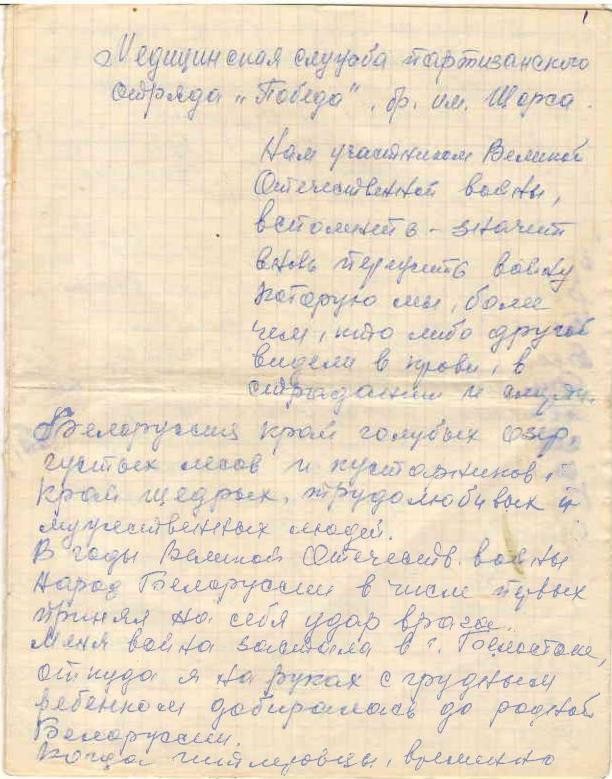 1
Медицинская служба партизанского
отряда „Победа", бр. им. Щорса.
Нам участникам Великой
Отечественной войны,
вспомнить - значит
вновь пережить войну
которую мы, более
чем, кто либо другой
видели в крови, в
страдании и
Белоруссия край голубых озер,
густых лесов и кустарников,
край щедрых, трудолюбивых и
мужественных людей.
В годы Великой Отечеств. войны
народ Белоруссии в числе первых
принял на себя удар врага.
Меня война застала в г.
откуда я на руках с грудным
ребенком добиралась до родной
Белоруссии.
Когда гитлеровцы, временно